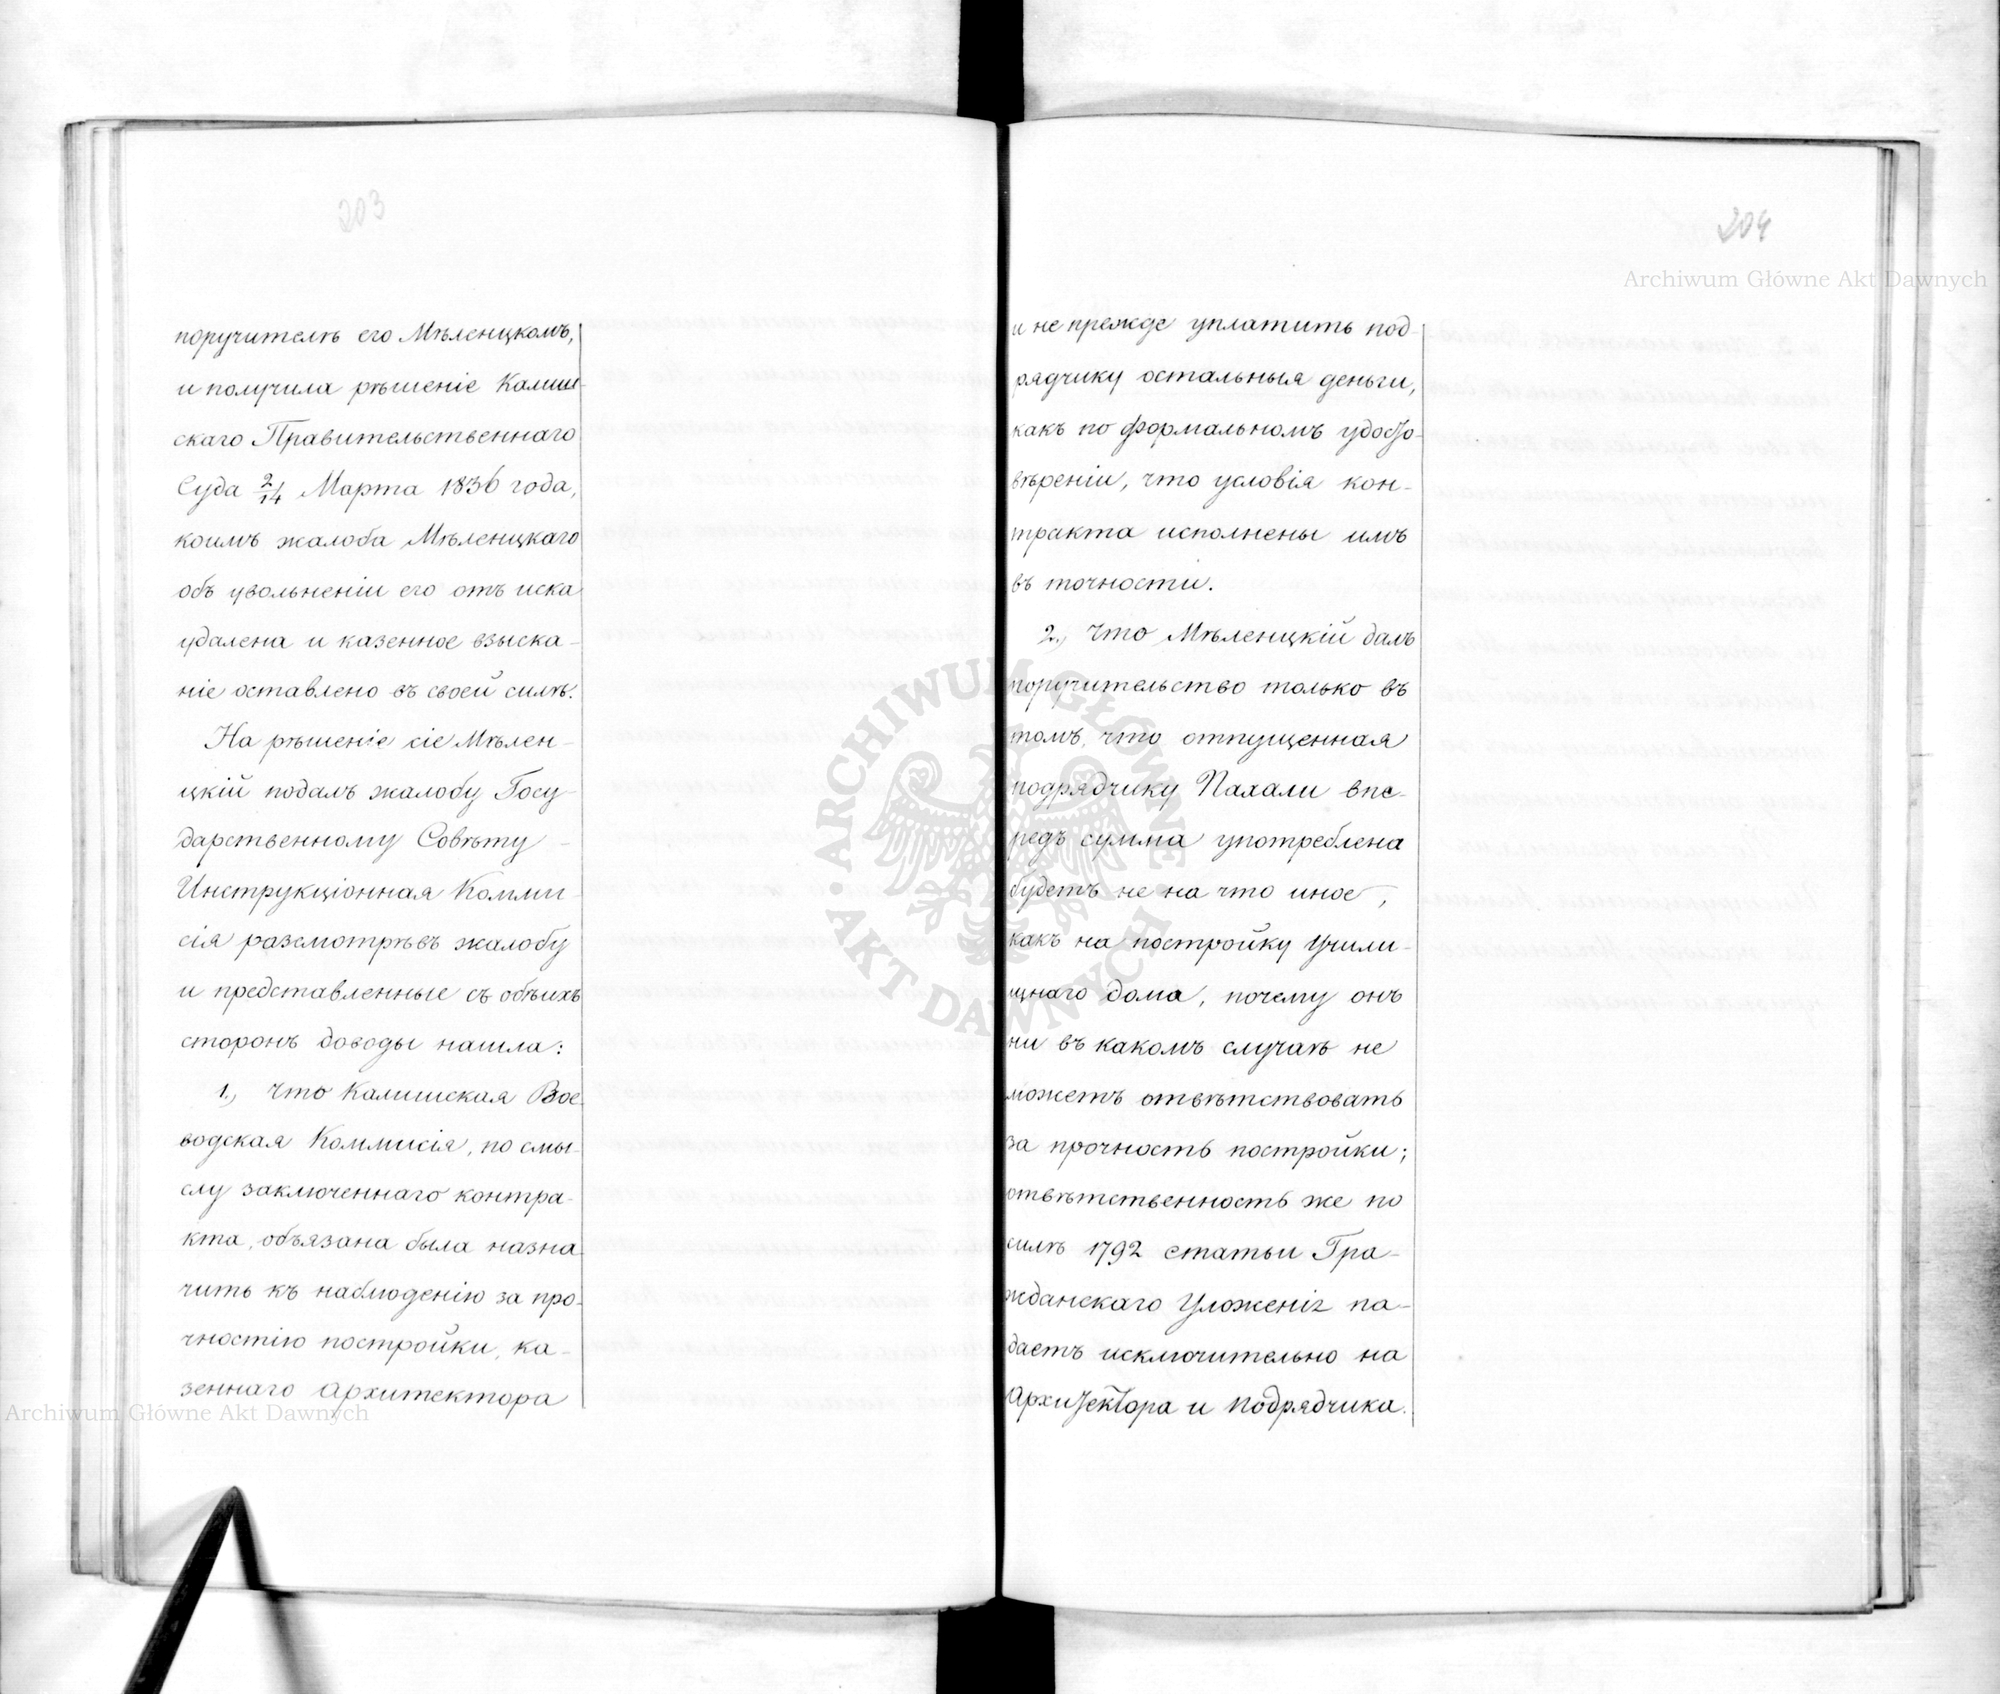 203
поручителѣ его Мѣленцкомъ,
и получила рѣшеніе Калиш-
скаго Правительственнаго
Суда 2/14 Марта 1836 года,
коимъ жалоба Мѣленцкаго
объ увольненіи его отъ иска
удалена и казенное взыска-
ніе оставлено въ своей силѣ.
На рѣшеніе сіе Мѣлен-
цкій подалъ жалобу Госу-
дарственному Совѣту –
Инструкціонная Комми-
сія разсмотрѣвъ жалобу
и представленные съ обѣихъ
сторонъ доводы нашла:
1., Что Калишская Вое-
водская Коммисія, по смы-
слу заключеннаго контра-
кта, обѣязана была назна-
чить къ наблюденію за про-
чностію постройки, ка-
зеннаго Архитектора
204
и не прежде уплатить под-
рядчику остальныя деньги,
какъ по формальномъ удосто-
вѣреніи, что условія кон-
тракта исполнены имъ
въ точности.
2., Что Мѣленцкій далъ
поручительство только въ
томъ, что отпущенная
подрядчику Пахали впе-
редъ сумма употреблена
будетъ не на что иное,
какъ на постройку Учили-
щнаго дома, почему онъ
ни въ какомъ случаѣ не
можетъ отвѣтствовать
за прочность постройки;
отвѣтственность же по
силѣ 1792 статьи Гра-
жданскаго Уложенія па-
даетъ исключительно на
Архитектора и Подрядчика.
Archiwum Główne Akt Dawnych
ARCHIWUM GŁÓWNE AKT DAWNYCH
Archiwum Główne Akt Dawnych